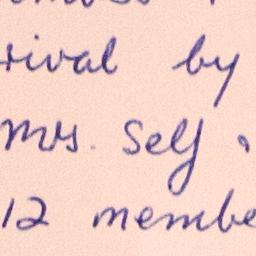 rival by
Mrs. Self,
12 membe